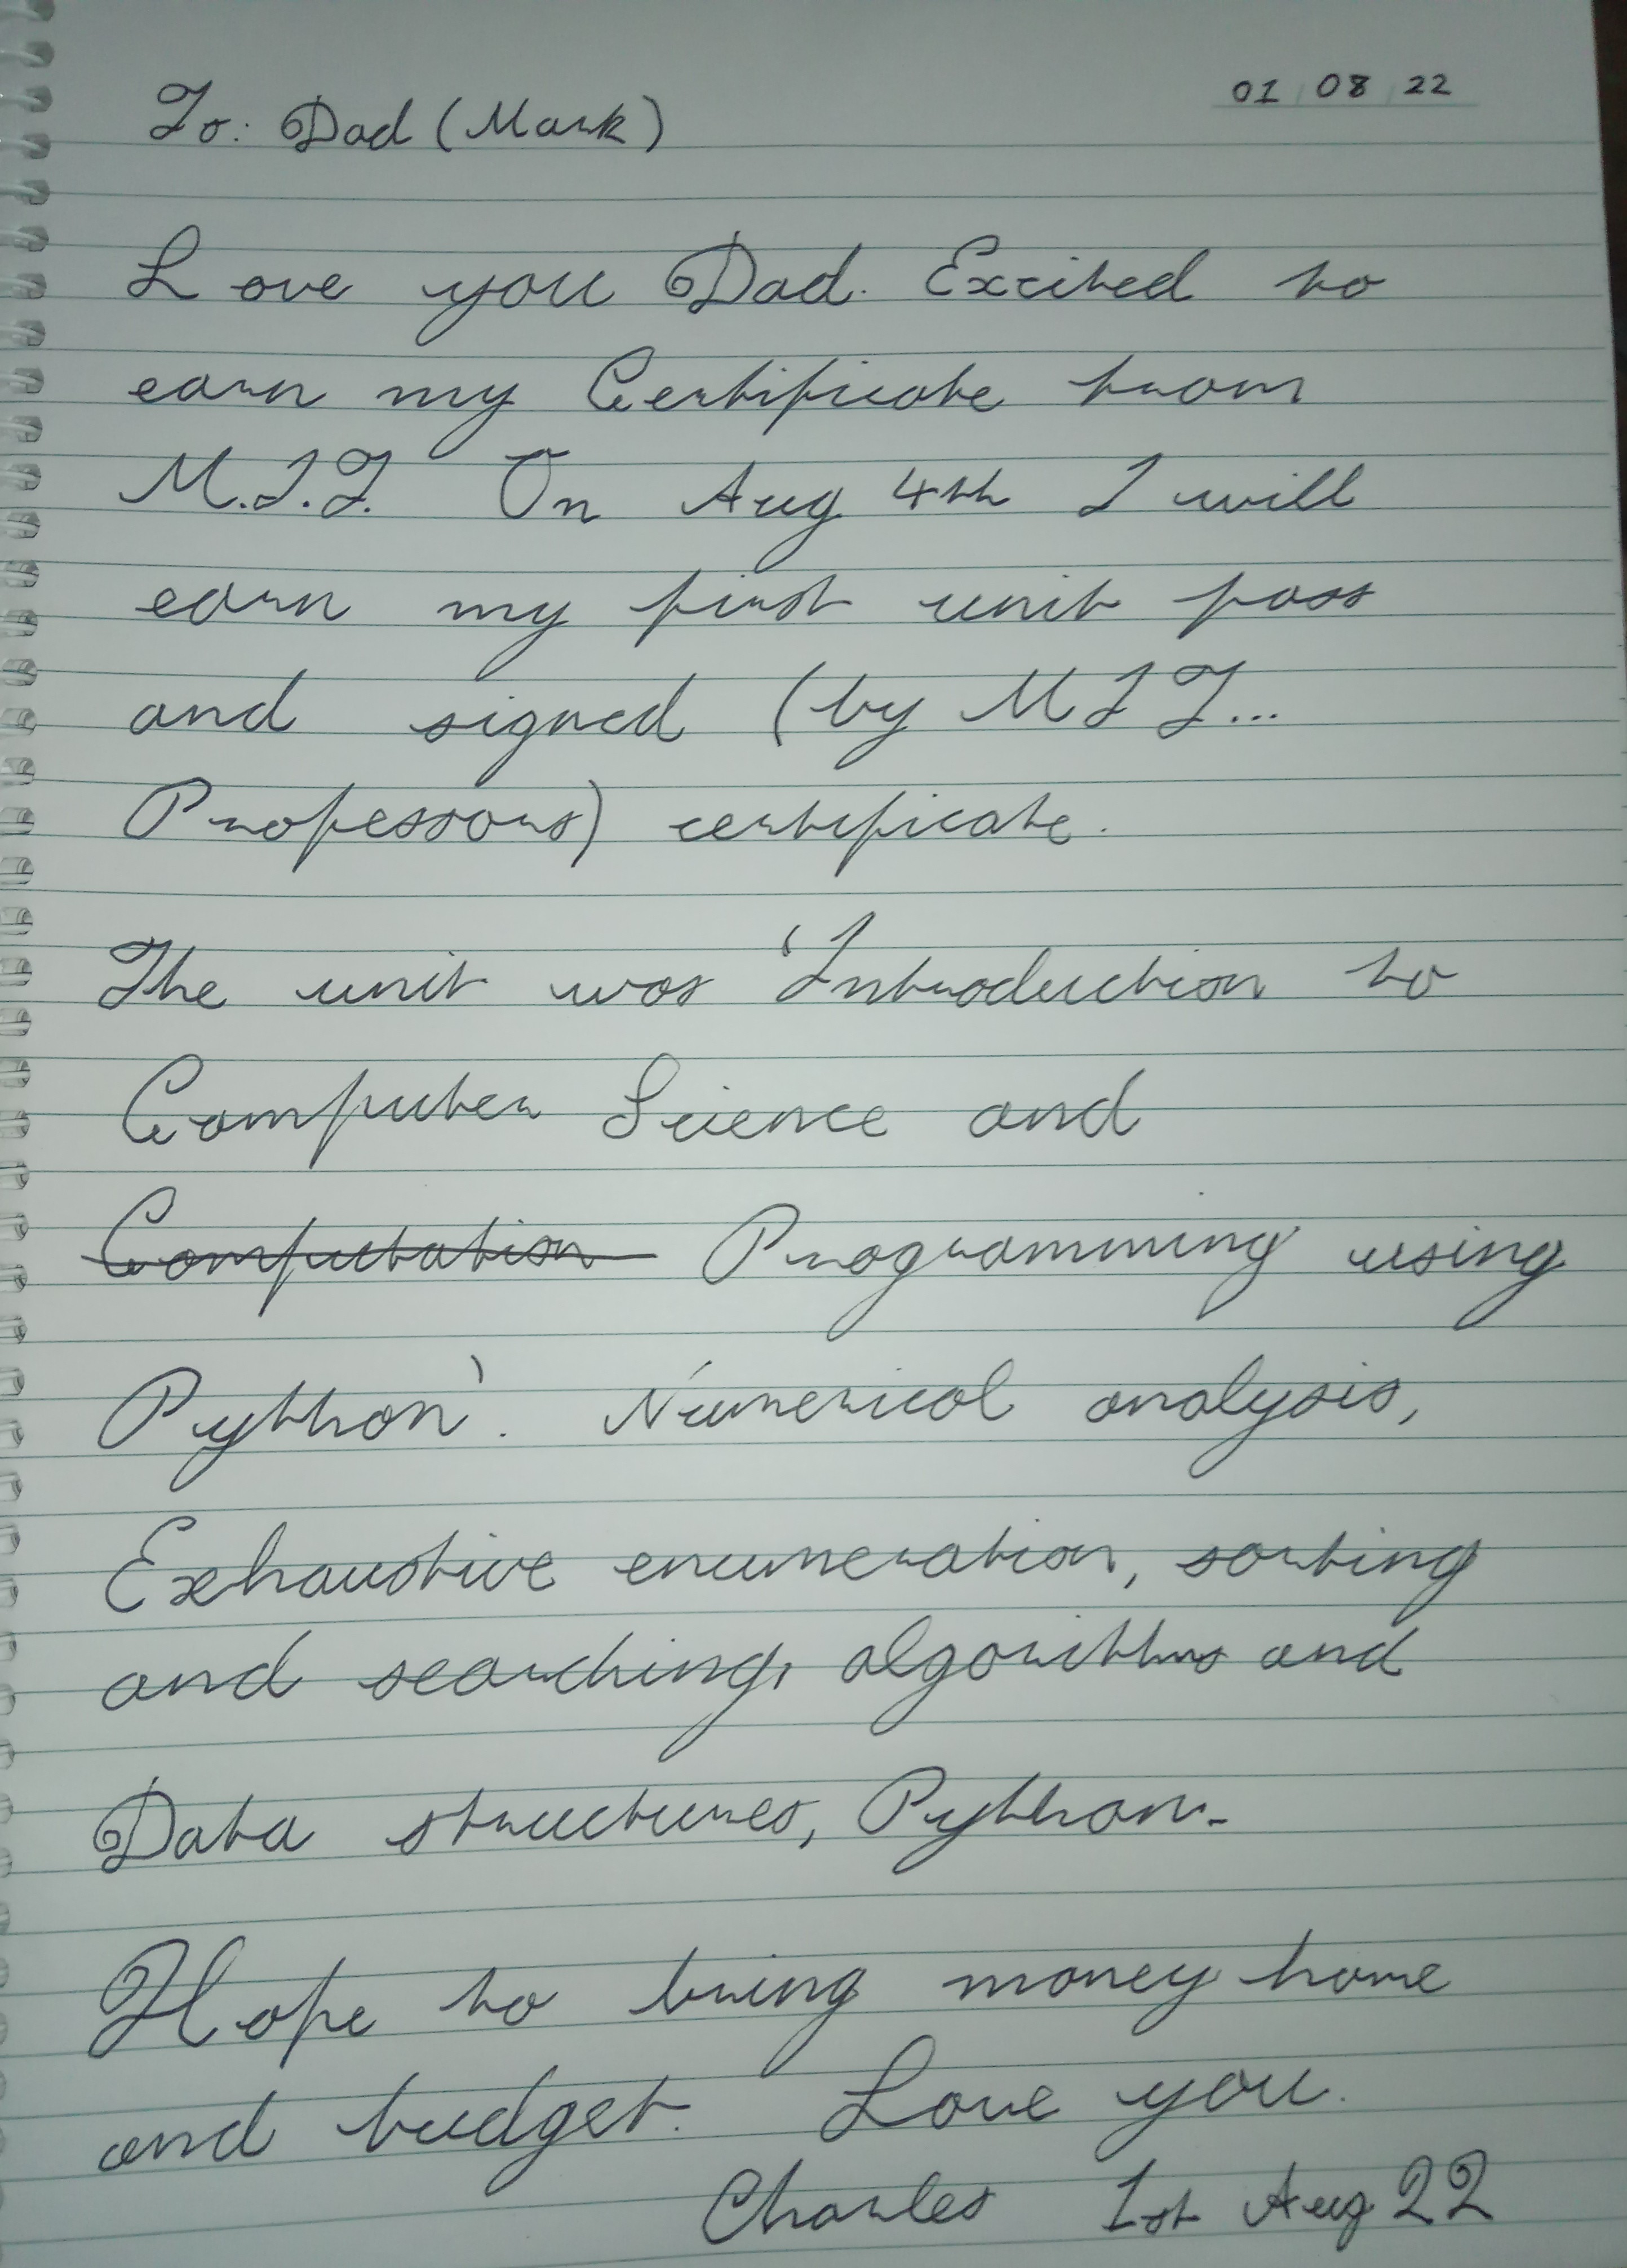 01 08 22
To: Dad (Mark)
Love you Dad. Excited to
earn my Certificate from
M.I.T. On Aug 4th I will
earn my first unit pass
and signed (by MIT...
Professors) certificate.
The unit was 'Introduction to
Computer Science and
Computation Programming using
Python'. Numerical analysis,
Exhaustive enumeration, sorting
and searching, algorithms and
Data structures, Python.
Hope to bring money home
and budget. Love you.
Charles 1st Aug 22